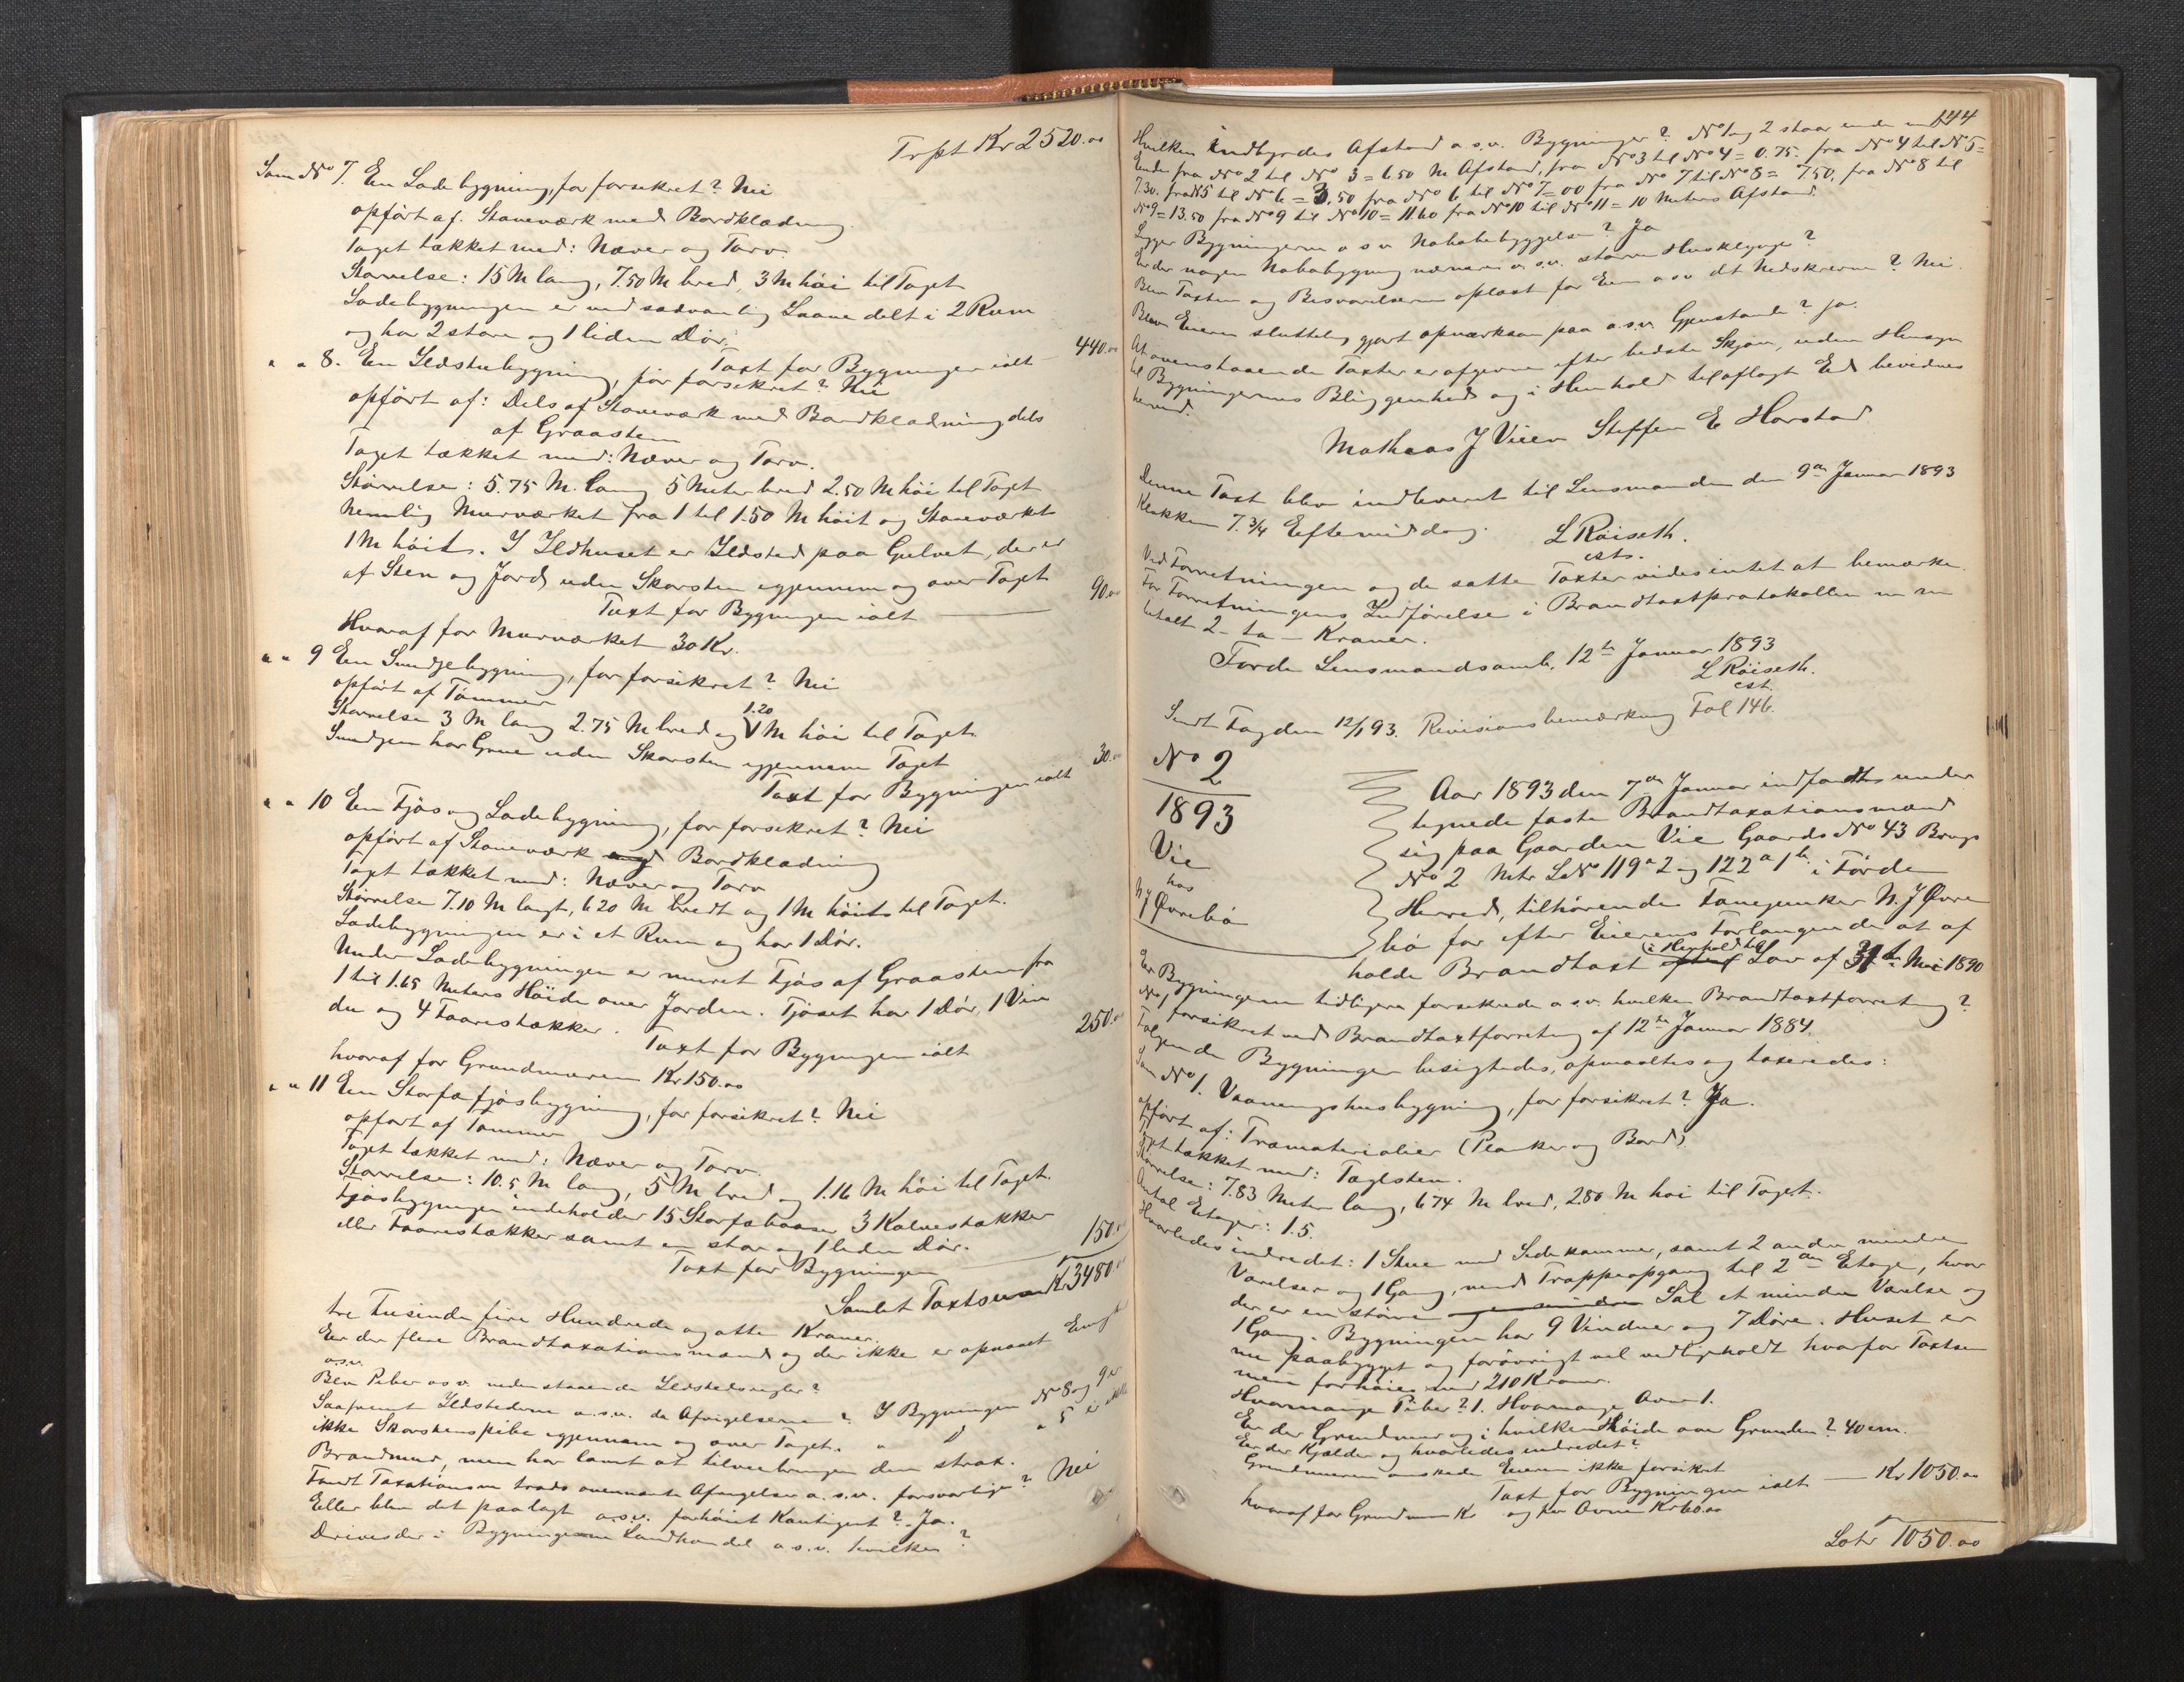 Trpt Kr 2520.00
Som No 7. En Ladebygning, før forsikret? Nei
opført af. Stavværk med Bordklædning.
Taget tækket med: Næver og Torv.
Størrelse: 15 M lang, 7.50 M bred, 3 M høi til Taget
Ladebygningen er med sædvanlig Laave delt i 2 Rum
og har 2 store og 1 liden Dør.
Taxt for Bygningen ialt 440.00
" " 8. En Ildstubygning, før forsikret? Nei
opført af: Dels af Stavværk med Bordklædning dels
af Graasten
Taget tækket med: Næver og Torv.
Størrelse: 5.75 M. lang 5 Meter bred 2.50 M høi til Taget
Nemlig Murværket fra 1 til 1.50 M høit og Stavværket
1 M høit. I Ildhuset er Ildsted paa Gulvet, der er
af Sten og Jord, uden Skorsten igjennem og over Taget
Taxt for Bygningen ialt 90.00
Hvoraf for Murværket 30 Kr.
" " 9 En Smidjebygning, før forsikret? Nei
opført af Tømmer
Størrelse 3 M lang 2.75 M bred og 1.20 M høi til Taget.
Smidjen har Grue uden Skorsten igjennem Taget
Taxt for Bygningen ialt 30.00
" " 10 En Fjøs og Ladebygning, før forsikret? Nei
opført af Stavværk med Bordklædning
Taget tækket med: Næver og Torv
Størrelse 7.10 M langt, 6.20 M bredt og 1 M høit til Taget.
Ladebygningen er i et Rum og har 1 Dør.
Under Ladebygningen er muret Fjøs af Graasten fra
1 til 1.65 Meters Høide over Jorden. Fjøset har 1 Dør, 1 Vin
du og 4 Faarestækker.
Taxt for Bygningen ialt 250.00
hvoraf for Grundmuren Kr 150.00
" " 11 En Storfæfjøsbygning, før forsikret? Nei
opført af Tømmer
Taget tækket med: Næver og Torv.
Størrelse: 10.5 M lang, 5 M bred og 1.16 M høi til Taget.
Fjøsbygningen indeholder 15 Storfæbaaser, 3 Kalvestækker
eller Faarestækker samt en stor og 1 liden Dør.
Taxt for Bygningen 150.00
Samlet Taxtsum Kr 3480.00
tre Tusinde fire Hundrede og otte Kroner.
Er der flere Brandtaxationsmænd og der ikke er opnaaet Enighed
o.s.v.
Blev Piber o s v. nedenstaaende Ildstedsregler?
Saafremt Ildstederne o.s.v. de Afvigelserne? I Bygningen No 8 og 9 er
ikke Skorstenspibe igjennem og over Taget. " D " 5 er ikke
Brandmur, men har lovet at tilveiebringe den strax.
Fandt Taxationsm trods ovennævnte Afvigelser o. s.v. forsvarlige? Nei
Eller blev det paalagt o.s.v. forhøiet Kontigent? Ja.
Drives der i Bygningerne Landhandel o.s.v. hvilken?
144
Hvilken indbyrdes Afstand o.s.v. Bygninger? No 1 og 2 staar ende mod
Ende fra No 2 til No 3 = 6.50 M Afstand, fra No 3 til No 4 = 0.75. fra No 4 til No 5 =
7.30. fra No 5 til No 6 = 3.50 fra No 6 til No 7 = 00 fra No 7 til No 8 = 7.50, fra No 8 til
No 9 = 13.50 fra No 9 til No 10 = 11.60 fra No 10 til No 11 = 10 Meters Afstand.
Ligger Bygningerne o s v Nabobebyggelse? Ja
Er der nogen Nabobygning nærmere o. s.v. større Husklynge?
Blev Taxten og Besvarelserne oplæst for Eier o s v det Nedskrevne? Nei.
Blev Eieren sluttelig gjort opmærksom paa o.s.v. Gjenstande? Ja.
At ovenstaaende Taxter er afgivne efter bedste Skjøn, uden Hensyn
til Bygningernes Beliggenhed og i Henhold til aflagt Ed bevidnes
herved.
Mathias J Vieen Steffen E Horstad
Denne Taxt blev indleveret til Lensmanden den 9de Januar 1893
Klokken 7.3/4 Eftermiddag.
L Røiseth.
cst.
Ved Forretningen og de satte Taxter vides intet at bemærke.
For Forretningens Indførelse i Brandtaxtprotokollen m m
betalt 2 - to - Kroner.
Førde Lensmandsomb. 12te Januar 1893
L Røiseth.
cst.
Sendt Fogden 12/1 93. Revisionsbemærkning Fol 146.
No 2
1893
Vie
hos
N J Øvrebø
Aar 1893 den 7de Januar indfandt under
tegnede faste Brandtaxationsmænd
sig paa Gaarden Vie Gaards No 43 Brugs
No 2 Mtr. L No 119 a 2 og 122 a 1 b i Førde
Herred, tilhørende Fanejunker N. J Øvre
bø for efter Eierens Forlangende at af
holde Brandtaxt i Henhold til Lov af 31te Mai 1890
Er Bygningerne tidligere forsikrede o s v. hvilken Brandtaxtforretning?
No 1 forsikret ved Brandtaxtforretning af 12te Januar 1884.
Følgende Bygninger besigtedes, opmaaltes og taxeredes:
Som No 1. Vaaningshusbygning, før forsikret? Ja.
opført af: Træmaterialier (Planker og Bord)
Taget tækket med: Taglsten.
Størrelse: 7.83 Meter lang, 6.74 M bred, 2.80 M høi til Taget.
Antal Etager: 1.5.
Hvorledes indredet: 1 Stue med Sidekammer, samt 2 andre mindre
Værelser og 1 Gang, med Trappeopgang til 2den Etage, hvor
der er en større og en mindre Sal et mindre Værelse og
1 Gang. Bygningen har 9 Vinduer og 7 Døre. Huset er
nu paabygget og forøvrigt vel vedligeholdt hvorfor Taxtsum
men forhøies med 210 Kroner.
Hvormange Piber? 1. Hvormange Ovne 1.
Er der Grundmur og i hvilken Høide over Grunden? 40 cm.
Er der Kjælder og hvorledes indredet?
Grundmuren ønskede Eieren ikke forsikret
Taxt for Bygningen ialt Kr 1050.00
hvoraf for Grundmur Kr og for Ovne Kr 60.00
Latr 1050.00